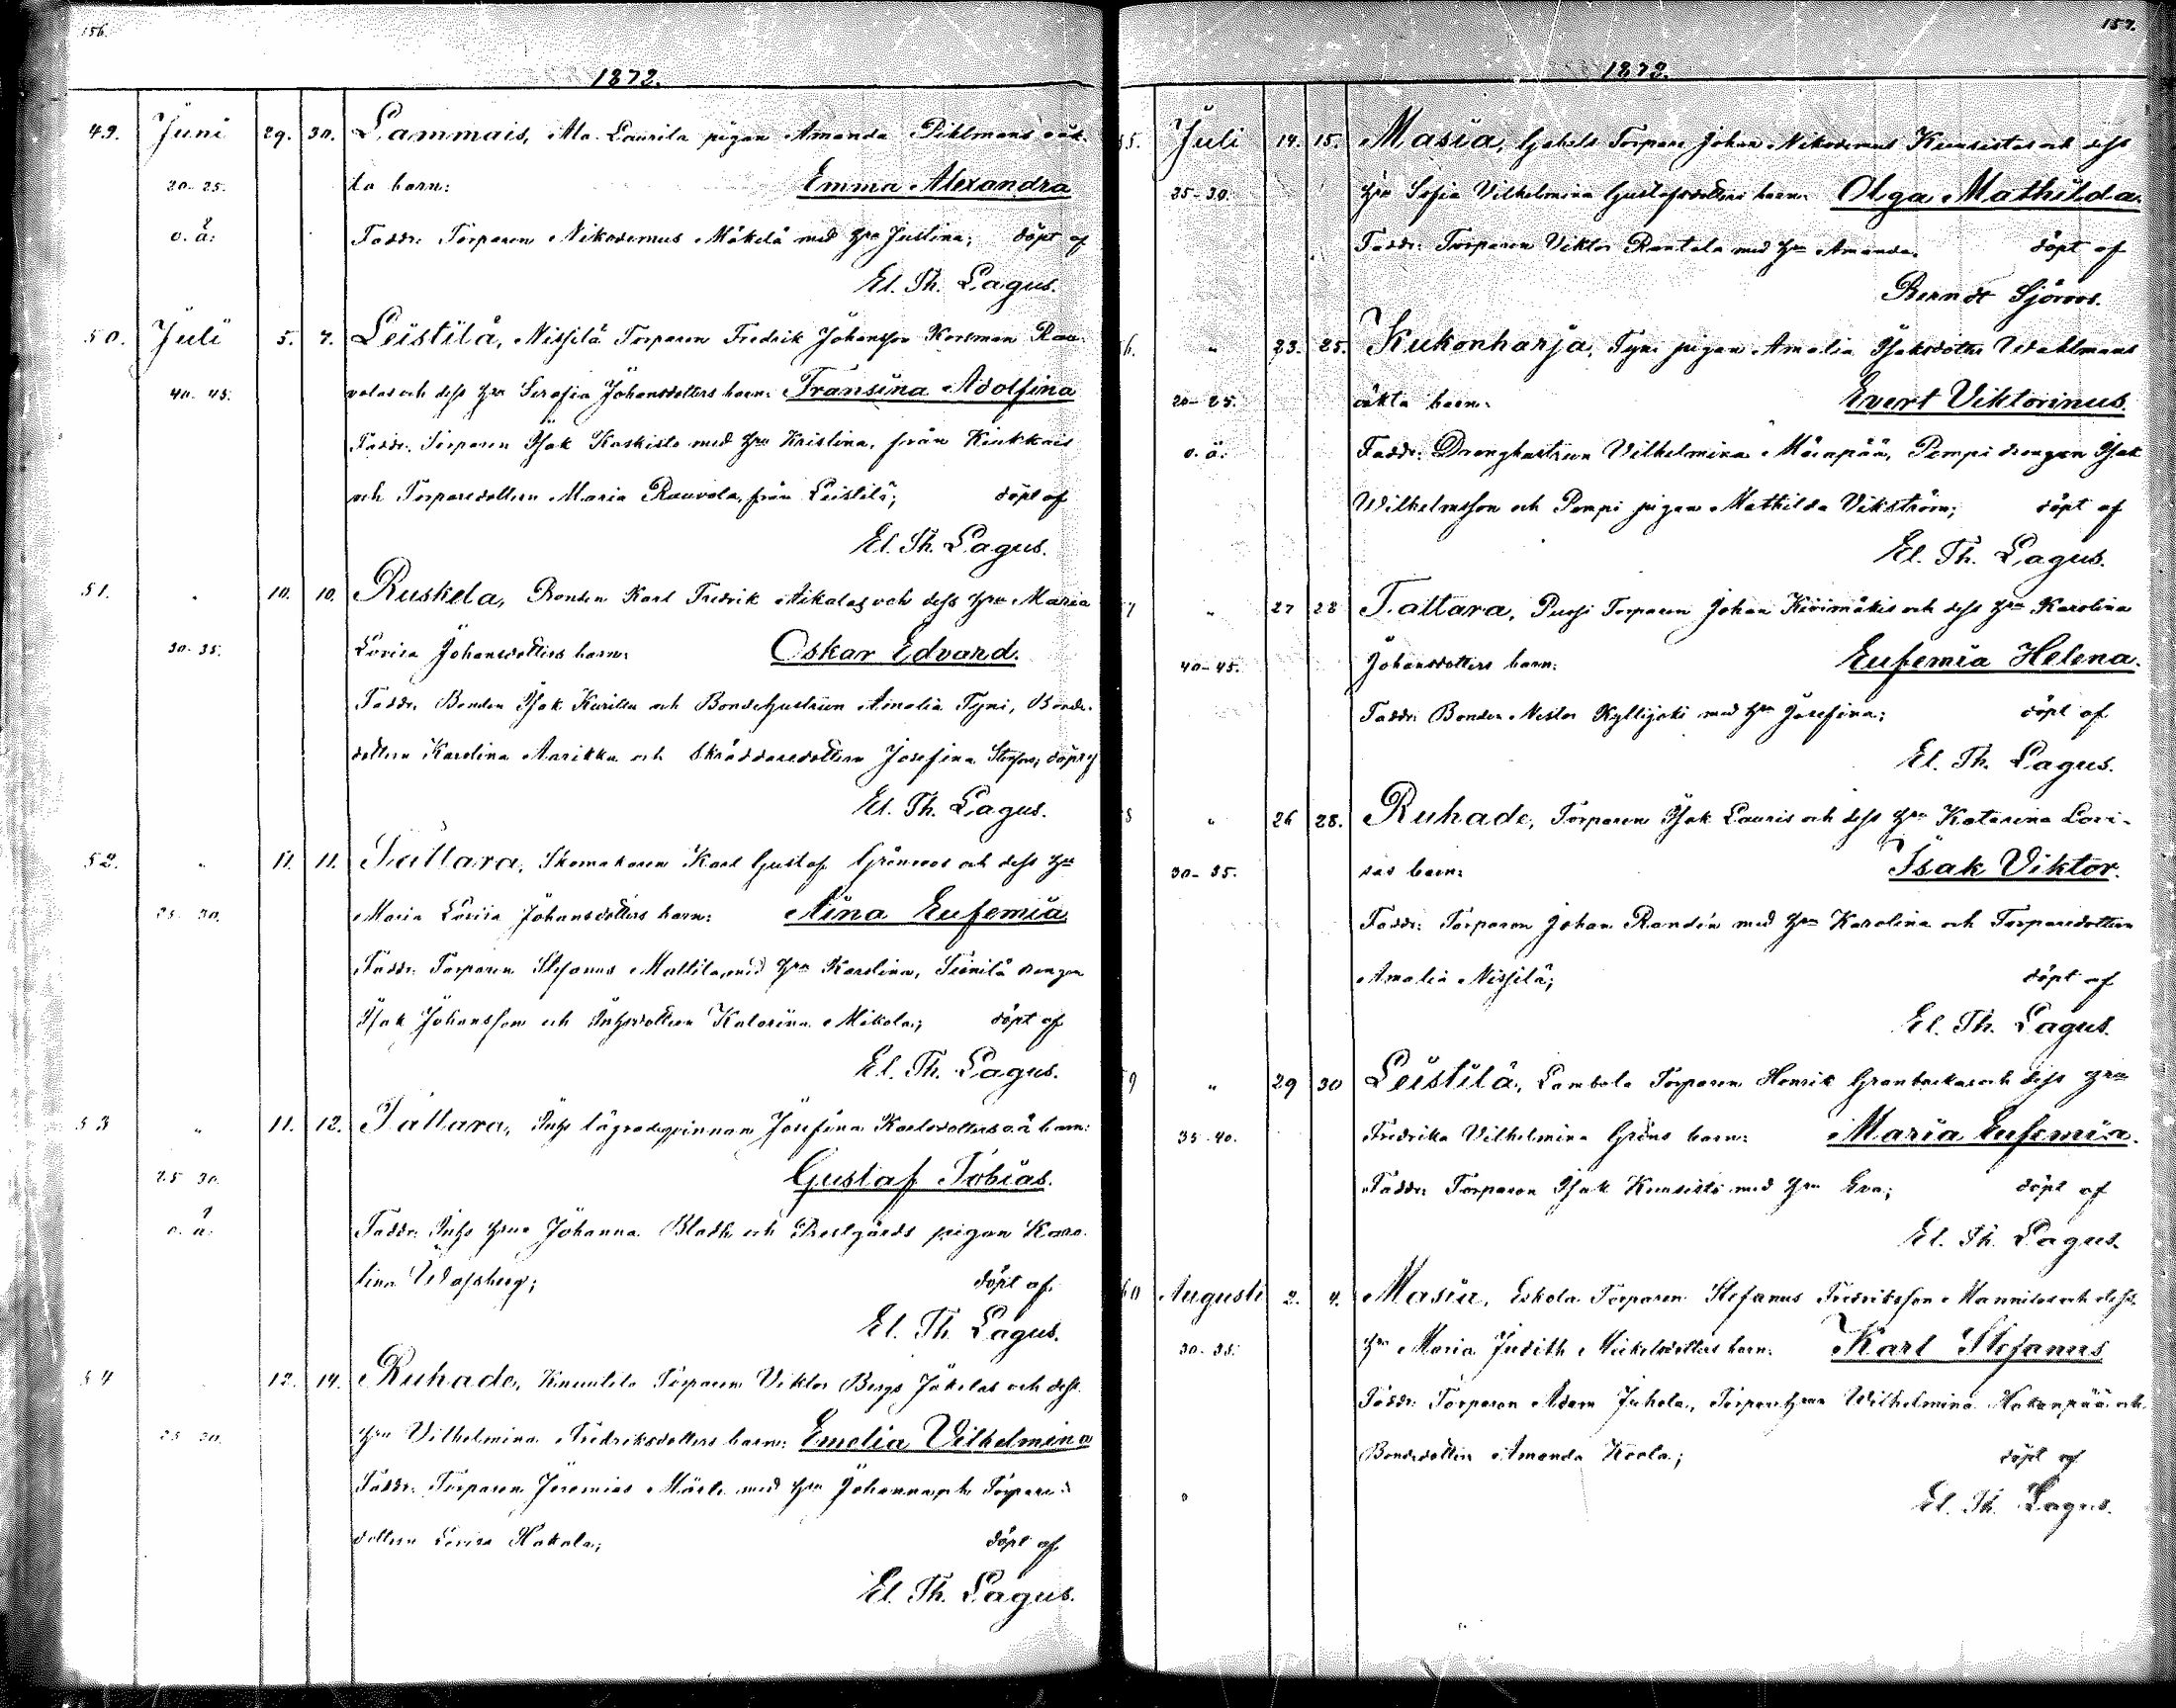 156.
1872.
49. Juni 29. 30. Lammais, Ala Laurila pigan Amanda Pihlmans oäk-
20-25. ta barn: Emma Alexandra
o. ä. Faddr: Torparen Nikodemus Mäkelä med hru Justina; döpt af
El. Th. Lagus.
50. Juli 5. 7. Leistilä, Nissilä Torparen Fredrik Johansson Korsman Rau-
40-45. volas och dess hru Serafia Johansdotters barn: Fransina Adolfina
Faddr: Torparen Isak Kaskisto med hru Kristina, från Kiukkais
och Torparedottern Maria Rauvola, från Leistilä; döpt af
El. Th. Lagus.
51. " 10. 10. Ruskela, Bonden Karl Fredrik Nikolas och dess hru Maria
30-35. Lovisa Johansdotters barn: Oskar Edvard.
Faddr: Bonden Isak Kurilla och Bondehustrun Amalia Tyni, Bonde-
dottern Karolina Aarikka och Skräddaredottern Josefina döpt af
El. Th. Lagus.
52. " 11. 11. Tattara, Skomakaren Karl Gustaf Grönroos och dess hru
25-30. Maria Lovisa Johansdotters barn: Aina Eufemia
Faddr: Torparen Stefanus Mattila med hru Karolina, drengen
Isak Johansson och Inhysdottern Katarina Mikola; döpt af
El. Th. Lagus.
53 " 11. 12. Tattara, Inhys Josefina Karlsdotters o.ä barn:
25-30. Gustaf Tobias.
o. ä. Faddr: Inhys hrun Johanna Bladh och Prestgårds pigan Karo-
lina döpt af
El. Th. Lagus.
54 12. 14. Ruhade, Torparen Viktor Bergs Jäkilas och dess
25-30. hru Vilhelmina Fredriksdotters barn: Emelia Vilhelmina
Faddr: Torparen Jeremias med hru Johanna och Torpare-
dottern Lovisa Hakala; döpt af
El. Th. Lagus.
157.
1872.
55. Juli 14. 15. Masia, Torparen Johan Nikodemus Kuusistos och dess
25-30. hru Sofia Vilhelmina Gustafsdotters barn: Olga Mathilda.
Faddr: Torparen Viktor Rantala med hru Amanda. döpt af
Berndt Sjöroos.
56. " 23. 25. Kukonharja, Tyni pigan Amalia Isaksdotter Wahlmans
20-25. oäkta barn: Evert Viktorinus.
o. ä. Faddr: Drenghustrun Vilhelmina Mäenpää, Pempi drengen Isak
Wilhelmsson och Pempi pigan Mathilda Vikström; döpt af
El. Th. Lagus.
57 " 27 28 Tattara, Torparen Johan Kivimäkis och dess hru Karolina
40-45. Johansdotters barn: Eufemia Helena.
Faddr: Bonden Nestor Kyllijoki med hru Josefina; döpt af
El. Th. Lagus.
58 " 26 28. Ruhade, Torparen Isak Lauris och dess hru Katarina Lovi-
30-35. sas barn: Isak Viktor.
Faddr: Torparen Johan Randén med hru Karolina och Torparedottern
Amalia Nissilä; döpt af
El. Th. Lagus.
59 " 29 30 Leistilä, Lambala Torparen Henrik Granbackas och dess hru
35-40. Fredrika Vilhelmina Gröns barn: Maria Eufemia.
Faddr: Torparen Isak Kuusisto med hru Eva; döpt af
El. Th. Lagus.
60 Augusti 2. 4. Masia, Eskola Torparen Stefanus Fredriksson Mannilas och dess
30-35. hru Maria Judith Mickelsdotters barn: Karl Stefanus
Faddr: Torparen Adam Juhola, Torparehrun Wilhelmina Hakanpää och
Bondedottern Amanda Koola; döpt af
El. Th. Lagus.